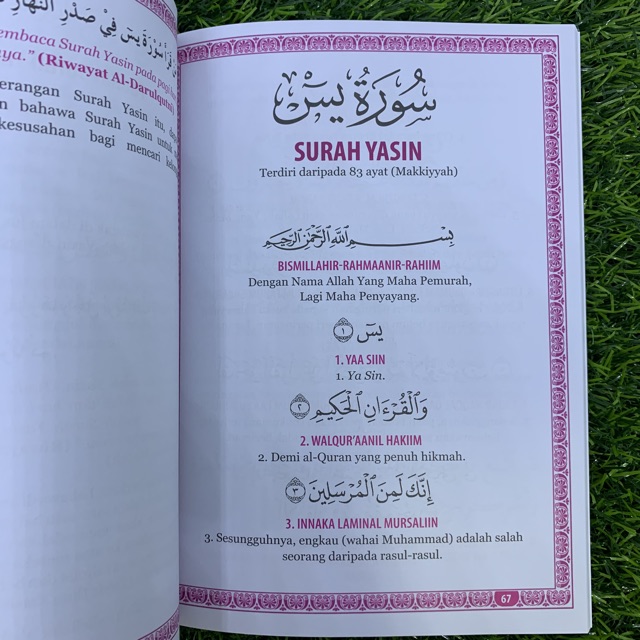 قَرَأَ سُوْرَةَ يسٓ فِيْ صَدْرِ النَّهَارِ
embaca Surah Yasin pada pagi
ya." (Riwayat Al-Darulqutni)
erangan Surah Yasin itu,
n bahawa Surah Yasin untuk
kesusahan bagi mencari
سُورَةُ يسٓ
SURAH YASIN
Terdiri daripada 83 ayat (Makkiyyah)
بِسْمِ اللَّهِ الرَّحْمَٰنِ الرَّحِيمِ
BISMILLAHIR-RAHMAANIR-RAHIIM
Dengan Nama Allah Yang Maha Pemurah,
Lagi Maha Penyayang.
يسٓ ١
1. YAA SIIN
1. Ya Sin.
وَالْقُرْءَانِ الْحَكِيمِ ٢
2. WALQUR'AANIL HAKIIM
2. Demi al-Quran yang penuh hikmah.
إِنَّكَ لَمِنَ الْمُرْسَلِينَ ٣
3. INNAKA LAMINAL MURSALIIN
3. Sesungguhnya, engkau (wahai Muhammad) adalah salah
seorang daripada rasul-rasul.
67